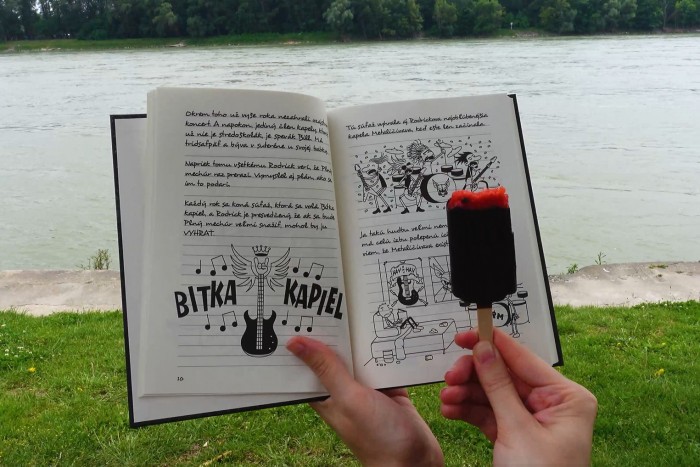 Okrem toho už vyše roka nezohrali
koncert. A napokon, jediný člen kapely,
už nie je stredoškolák, je spevák Bill. Má
tridsaťpäť a býva v suteréne u svojej
Napriek tomu všetkému Rodrick verí, že Plný
mechúr raz prerazí. Vymyslel aj plán, ako sa
im to podarí.
Každý rok sa koná súťaž, ktorá sa volá Bitka
kapiel, a Rodrick je presvedčený, že ak sa bude
Plný mechúr veľmi snažiť, mohol by ju
VYHRAŤ.
BITKA KAPIEL
10
Tú súťaž vyhrala aj Rodrickova najobľúbenejšia
kapela Metaličizácia, keď ešte len začínala.
Ja takú hudbu veľmi
má celú izbu polepenú
viem, že Metaličizácia